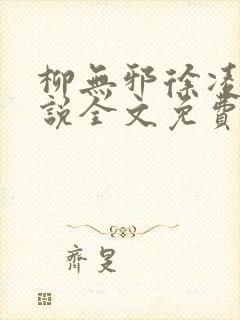 柳無邪徐凌
說全文免費
齊是